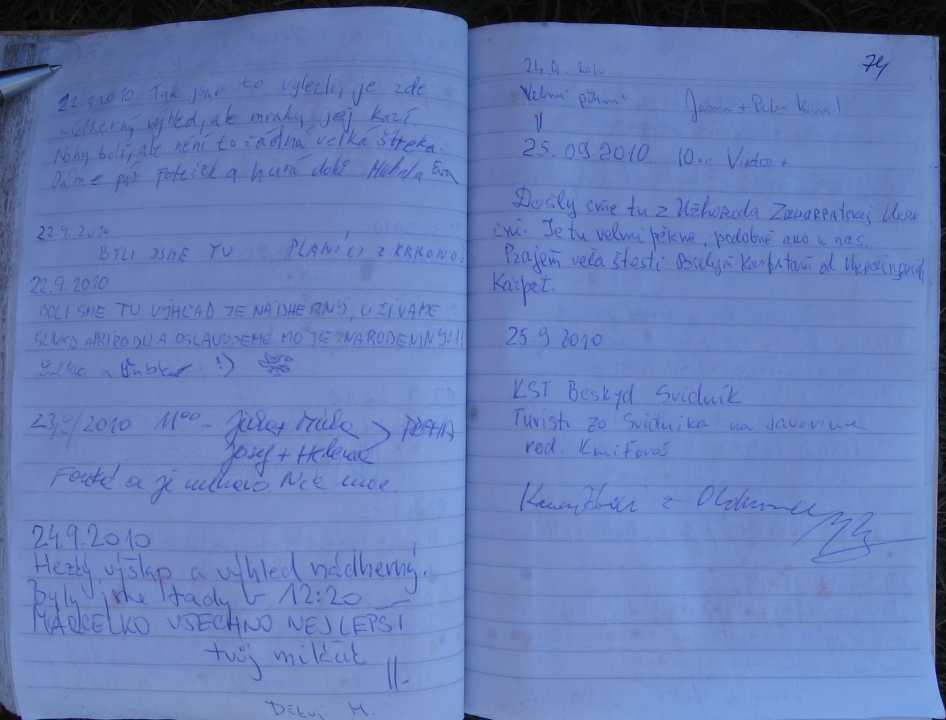 22.9.2010 Tak jsme to vylezli, je zde
nádherný výhled, ale mraky jej kazí
Nohy bolí, ale není to žádná velká štreka.
Dáme pár fotiček a hurá dolů
22.9.2010
BYLI JSME TU PLANÍCI Z KRKONOŠ
22.9.2010
BOLI SME TU VÝHĽAD JE NÁDHERNÝ, UŽÍVAME
SLNKO A PRÍRODU A OSLAVUJEME MOJE NARODENINY!!
a Ľubka :)
23/9/2010 11⁰⁰ - Jirka + Milka
Josef + Helena > PRAHA
a je
24.9.2010
Hezký výšlap a výhled nádherný.
Byly jsme tady v 12:20
MARCELKO VŠECHNO NEJLEPŠÍ
tvůj miláček
Děkuji M.
74
Velmi pěkné Jana + Petr
25.09.2010 10..
Došly sme tu z Užhoroda Zakarpatskej
Je tu velmi pěkne, podobně ako u nas.
Prajem vela štesti Bielym Karpatam od
Karpat.
25.9 2010
KST Beskyd Svidník
Turisti zo Svidníka na Javorine
rod.
z Olomouce